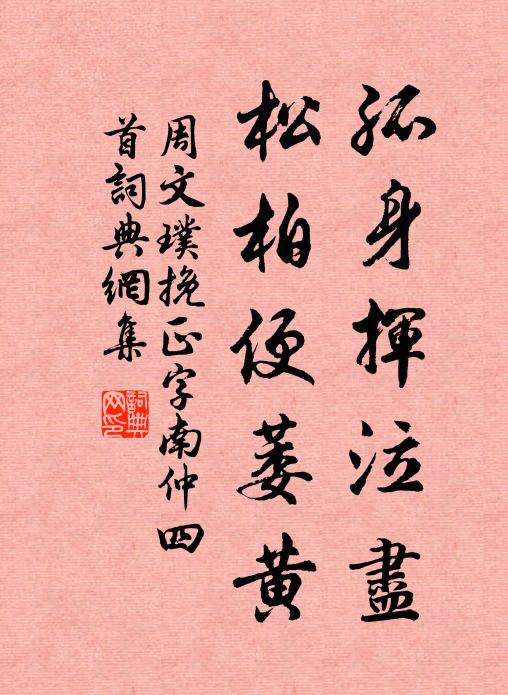 孤身揮泣盡
松柏便萎黃
周文璞挽正字南仲四
首詞典網集
詞典
网印